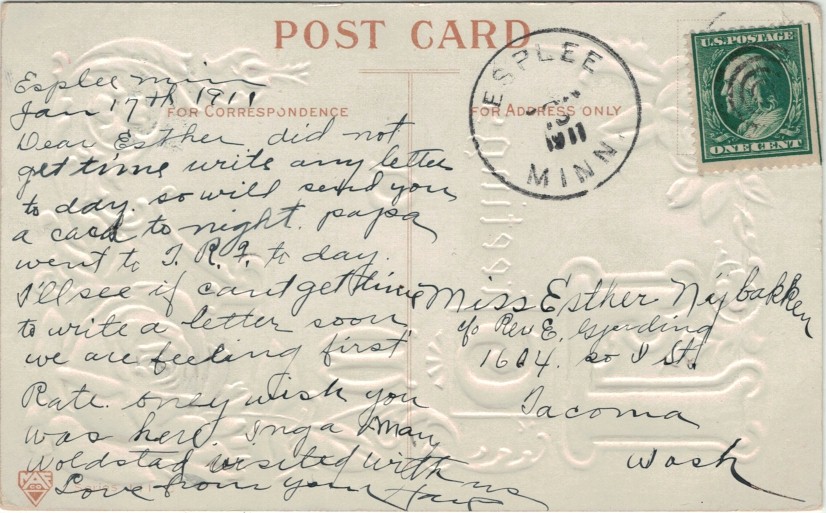 POST CARD
FOR CORRESPONDENCE
FOR ADDRESS ONLY
ESPLEE
JAN
1911
MINN.
U.S. POSTAGE
ONE CENT
Esplee Minn
Jan 17th 1911
Dear Esther did not
get time write any letter
to day. so will send you
a card to night. papa
went to T. R. F. to day.
I'll see if cant get time
to write a letter soon
we are feeling first
Rate. only wish you
was here. Inga May
Woldstad visited with us
Love from your
Miss Esther Nybakken
c/o Rev E. Gjerding
1604. so I St.
Tacoma
Wash